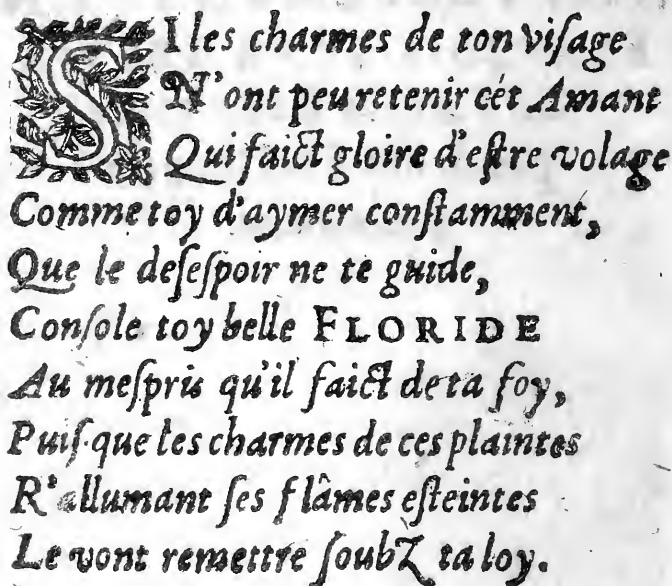 SI les charmes de ton viſage
N'ont peu retenir cét Amant
Qui faict gloire d'eſtre volage
Comme toy d'aymer conſtamment,
Que le deſeſpoir ne te guide,
Conſole toy belle FLORIDE
Au meſpris qu'il faict de ta foy,
Puiſ-que tes charmes de ces plaintes
R'allumant ſes flâmes eſteintes
Le vont remettre ſoubZ ta loy.